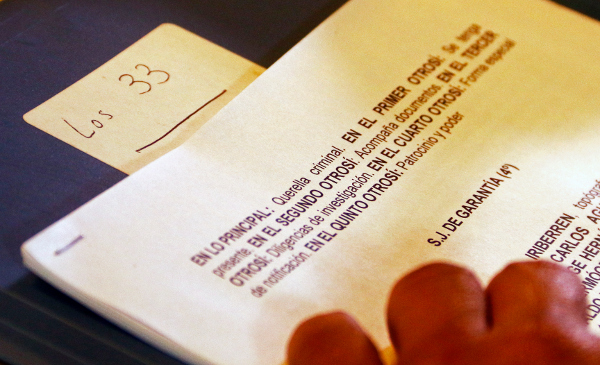 Los 33
EN LO PRINCIPAL: Querella criminal. EN EL PRIMER OTROSÍ: Se tenga
presente. EN EL SEGUNDO OTROSÍ: Acompaña documentos. EN EL TERCER
OTROSÍ: Diligencias de investigación. EN EL CUARTO OTROSÍ: Forma especial
de notificación. EN EL QUINTO OTROSÍ: Patrocinio y poder
S.J. DE GARANTÍA (4º)
IRIBERREN, 
CARLOS